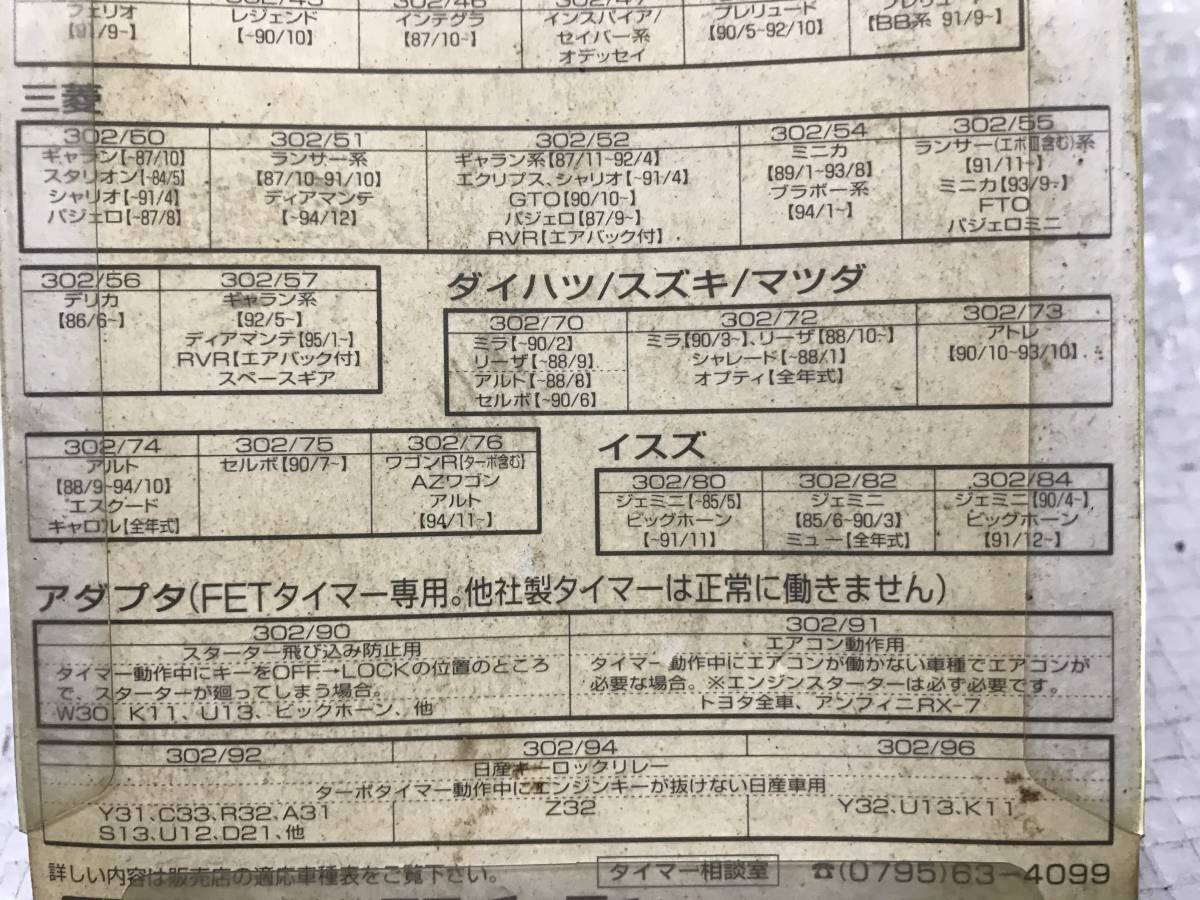 フェリオ
【91/9~】
レジェンド
【~90/10】
302/46
インテグラ
【87/10~】
インスパイア/
セイバー系
オデッセイ
プレリュード
【90/5~92/10】
【BB系 91/9~】
三菱
302/50
ギャラン【~87/10】
スタリオン【~84/5】
シャリオ【~91/4】
パジェロ【~87/8】
302/51
ランサー系
【87/10~91/10】
ディアマンテ
【~94/12】
302/52
ギャラン系【87/11~92/4】
エクリプス、シャリオ【~91/4】
GTO【90/10~】
パジェロ【87/9~】
RVR【エアバック付】
302/54
ミニカ
【89/1~93/8】
ブラボー系
【94/1~】
302/55
ランサー(エボⅢ含む)系
【91/11~】
ミニカ【93/9~】
FTO
パジェロミニ
302/56
デリカ
【86/6~】
302/57
ギャラン系
【92/5~】
ディアマンテ【95/1~】
RVR【エアバック付】
スペースギア
ダイハツ/スズキ/マツダ
302/70
ミラ【~90/2】
リーザ【~88/9】
アルト【~88/8】
セルボ【~90/6】
302/72
ミラ【90/3~】、リーザ【88/10~】
シャレード【~88/1】
オプティ【全年式】
302/73
アトレ
【90/10~93/10】
302/74
アルト
【88/9~94/10】
エスクード
キャロル【全年式】
302/75
セルボ【90/7~】
302/76
ワゴンR【ターボ含む】
AZワゴン
アルト
【94/11~】
イスズ
302/80
ジェミニ【~85/5】
ビッグホーン
【~91/11】
302/82
ジェミニ
【85/6~90/3】
ミュー【全年式】
302/84
ジェミニ【90/4~】
ビッグホーン
【91/12~】
アダプタ(FETタイマー専用。他社製タイマーは正常に働きません)
302/90
スターター飛び込み防止用
タイマー動作中にキーをOFF→LOCKの位置のところ
で、スターターが廻ってしまう場合。
W30、K11、U13、ビッグホーン、他
302/91
エアコン動作用
タイマー動作中にエアコンが働かない車種でエアコンが
必要な場合。※エンジンスターターは必ず必要です。
トヨタ全車、アンフィニRX-7
302/92
302/94
302/96
日産キーロックリレー
ターボタイマー動作中にエンジンキーが抜けない日産車用
Y31、C33、R32、A31
S13、U12、D21、他
Z32
Y32、U13、K11
詳しい内容は販売店の適応車種表をご覧下さい。
タイマー相談室
☎(0795)63-4099